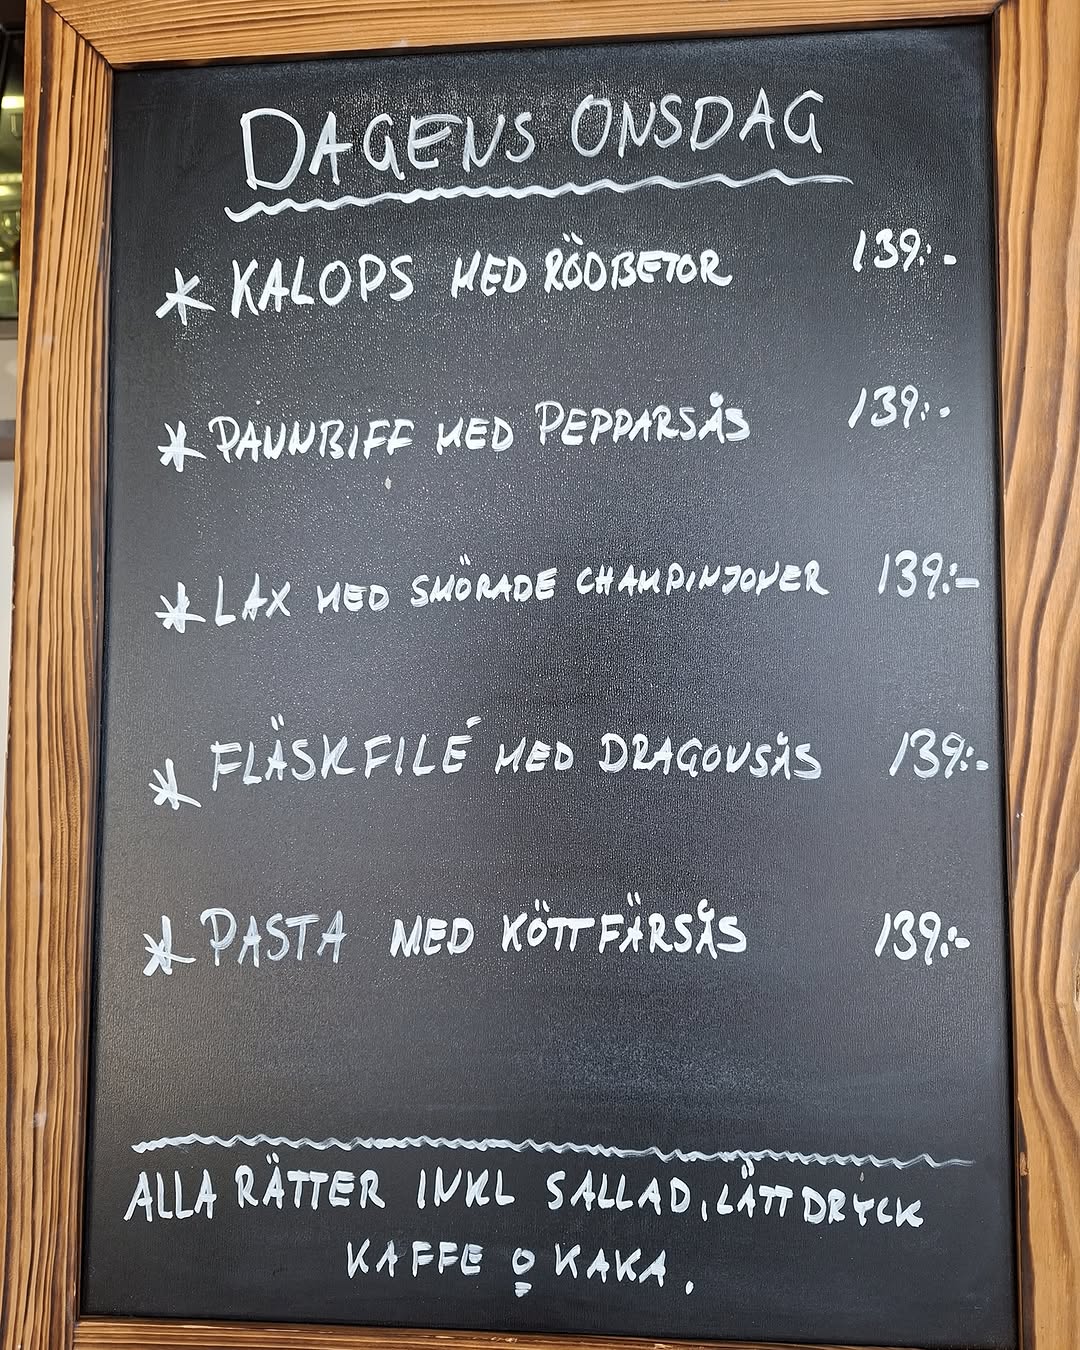 DAGENS ONSDAG
* KALOPS MED RÖDBETOR 139:-
* PANNBIFF MED PEPPARSÅS 139:-
* LAX MED SMÖRADE CHAMPINJONER 139:-
* FLÄSKFILÉ MED DRAGONSÅS 139:-
* PASTA MED KÖTTFÄRSÅS 139:-
ALLA RÄTTER INKL SALLAD, LÄTTDRYCK
KAFFE o KAKA.